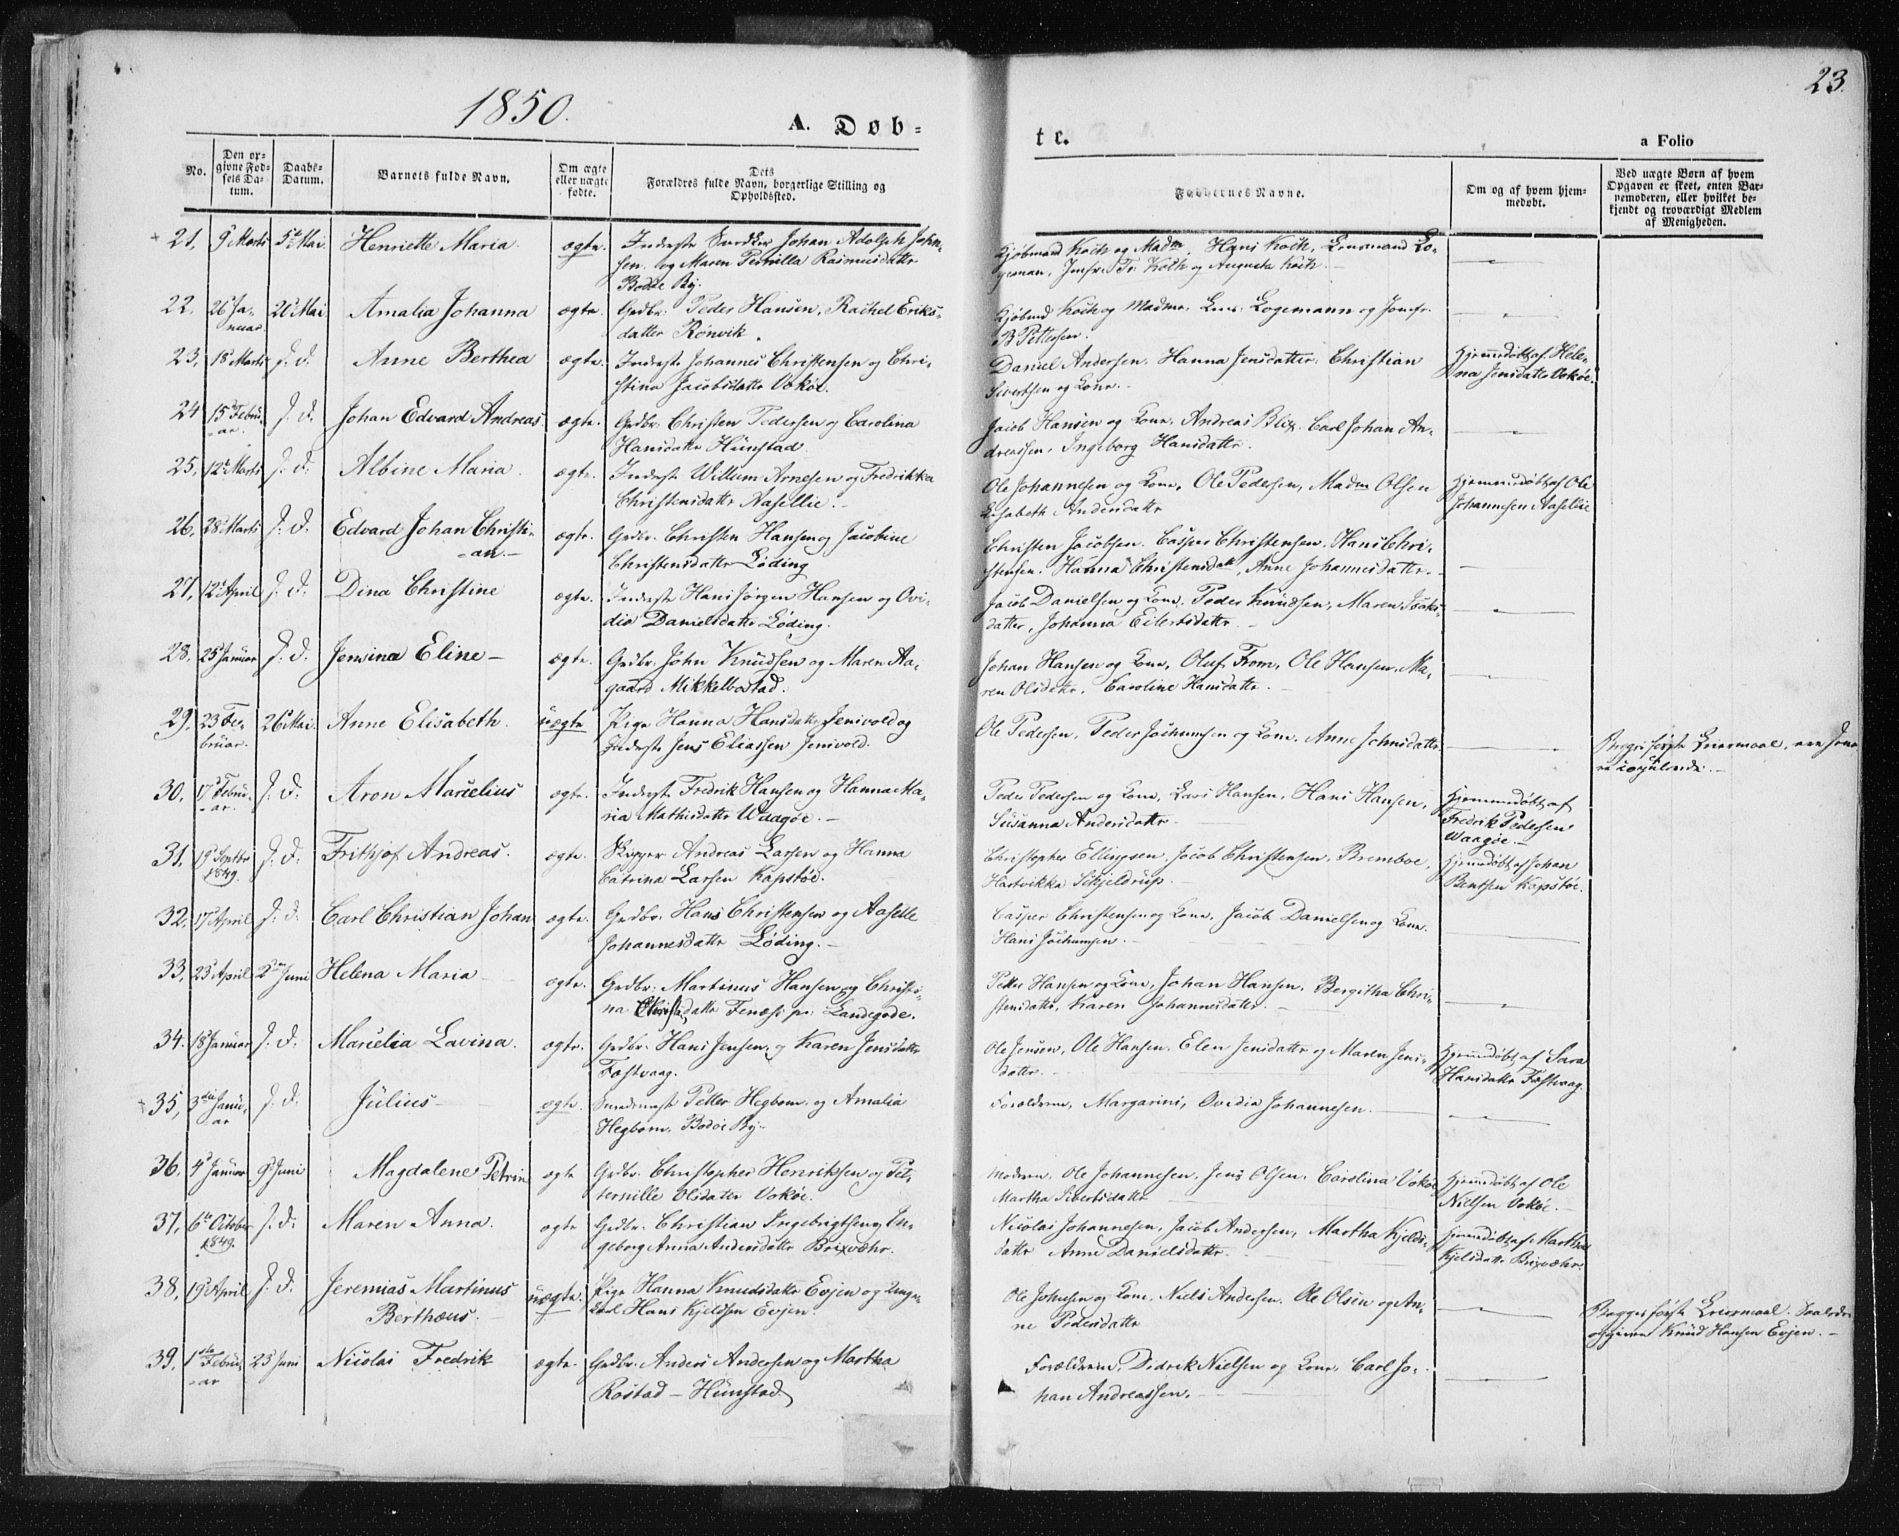 1850.
A. Døb-
te.
a Folio
23.
No.
Den op-
givne Fød-
sels Da-
tum.
Daabs-
Datum.
Barnets fulde Navn.
Om ægte
eller uægte
fødte.
Dets
Forældres fulde Navn, borgerlige Stilling og
Opholdssted.
Faddernes Navne.
Om og af hvem hjem-
medøbt.
Ved uægte Børn af hvem
Opgaven er skeet, enten Bar-
nemoderen, eller hvilket be-
kjendt og troværdigt Medlem
af Menigheden.
21. 9 Marts 5te Mai Henriette Maria. ægte. Inderste Johan Adolph Johan-
sen og Maren Pernilla Rasmusdatter
Bodøe By.
Kjøbmand Koch og Madm. Hans Koch, Lo-
gemann, Jomfr. Fr. Koch og Augusta Koch.
22. 26 Ja-
nuar 20 Mai Amalia Johanna ægte. Grdbr. Peder Hansen, Rachel Eriks-
datter Rønvik.
Koch og Madme, Logemann og Jomfr.
B Pettersen.
23. 18 Marts s. d. Anne Berthea ægte. Inderste Johannes Christensen og Chri-
stina Jacobsdatter Vokøe.
Daniel Andersen. Hanna Jensdatter. Christian
Sivertsen og Kone.
Hjemmedøbt af Hele-
na Jensdatter Vokøe.
24 15 Febru-
ar. s. d. Johan Edvard Andreas. ægte. Grdbr. Christen Pedersen og Carolina
Hansdatter Hunstad.
Jacob Hansen og Kone, Andreas Blix, Carl Johan An-
dreassen, Ingeborg Hansdatter.
25. 12te Marts s. d. Albine Maria. ægte. Inderste Willum Arnesen og Fredrikka
Christensdatter Aasellie.
Ole Johannesen og Kone, Ole Pedersen, Madm Olsen
Elisabeth Andersdatter
Hjemmedøbt af Ole
Johannesen Aasellie
26. 28 Marts s. d. Edvard Johan Christi-
an. ægte. Grdbr. Christen Hansen og Jacobine
Christensdatter Løding
Christen Jacobsen. Casper Christensen. Hans Chri-
stensen. Hanna Christensdatt, Anne Johannesdatter.
27. 12te April s. d. Dina Christine ægte. Inderste Hans Jørgen Hansen og Ovi-
dia Danielsdatter Løding.
Jacob Danielsen og Kone. Peder Knudsen, Maren Isaks-
datter, Johanna Eilertsdatter.
28. 25 Januar s. d. Jensina Eline ægte. Grdbr. John Knudsen og Maren Aa-
gaard Mikkelbostad.
Johan Hansen og Kone, Oluf From, Ole Hansen, Ma-
ren Olsdatter. Caroline Hansdatter.
29. 23 Fe-
bruar. 26 Mai. Anne Elisabeth. uægte Pige Hanna Hansdatter Jenivold og
Inderste Jens Eliassen Jenivold.
Ole Pedersen, Peder Jochumsen og Kone. Anne Johnsdatter
Begges første Leiermaal.
30. 17 Febru-
ar. s. d. Aron Marcelius ægte. Inderste Fredrik Hansen og Hanna Ma-
ria Mathisdatter Waagøe.
Peder Pedersen og Kone, Lars Hansen, Hans Hansen,
Susanna Andersdatter.
Hjemmedøbt af
Fredrik Pedersen
Waagøe.
31. 19 Septbr
1849. s. d. Frithjof Andreas. ægte. Skipper Andreas Larsen og Hanna
Catrina Larsen Kapstøe.
Christopher Ellingsen, Jacob Christensen, Bremboe,
Hartvikka Schjeldrup.
Hjemmedøbt af Johan
Bentsen Kapstøe.
32. 17 April s. d. Carl Christian Johan ægte. Grdbr. Hans Christensen og Aaselle
Johannesdatter Løding.
Casper Christensen og Kone, Jacob Danielsen og Kone.
Hans Jochumsen.
33. 23 April 2den Juni Helena Maria ægte. Grdbr. Martinus Hansen og Christi-
na datter Fenæs pr: Landegode.
Petter Hansen og Kone, Johan Hansen. Bergitha Chri-
stensdatter, Karen Johannesdatter.
34. 18 Januar s. d. Marcelia Lavina. ægte. Grdbr. Hans Jensen og Karen Jensdatter
Fæstvaag.
Ole Jensen, Ole Hansen. Elen Jensdatter og Maren Jens-
datter.
Hjemmedøbt af Sara
Hansdatter Fæstvaag.
35. 3die Janu-
ar s. d. Julius ægte. Petter Hegbom og Amalia
Hegbom. Bodøe By.
Forældrene, Ovedia Johannesen.
36. 4 Januar 9 Juni Magdalene Petrin ægte Grdbr. Christopher Henriksen og Pet-
ternille Olsdatter Vokøe.
Moderen. Ole Johannesen, Jens Olsen, Carolina Vokøe
Martha Sibertsdatter
Hjemmedøbt af Ole
Nielsen Vokøe.
37. 6te October
1849. s. d. Maren Anna. ægte Grdbr. Christian Ingebrigtsen og In-
geborg Anna Andersdatter Brixvæhr.
Nicolai Johannesen, Jacob Andersen, Martha Kjelds-
datter Anne Danielsdatter.
Hjemmedøbt af Martha
Kjelsdatter Brixvæhr.
38. 19 April s. d. Jeremias Martinus
Berthæus. uægte. Pige Hanna Knudsdatter Evjen og Unge-
karl Hans Kjeldsen Evjen.
Ole Johnsen og Kone, Niels Andersen. Ole Olsen og An-
ne Pedersdatter
Begges første Leiermaal. Saaledes
opgiven Knud Hansen Evjen.
39. 1ste Febru-
ar 23 Juni Nicolai Fredrik ægte. Grdbr. Anders Andersen og Martha
Rostad Hunstad
Forældrene, Didrik Nielsen og Kone, Carl Jo-
han Andreassen.